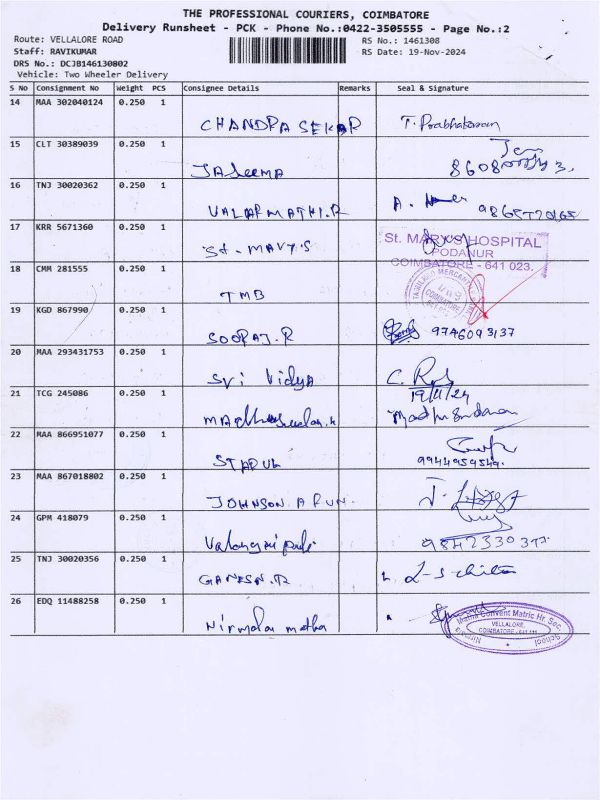 THE PROFESSIONAL COURIERS, COIMBATORE
Delivery Runsheet - PCK - Phone No.:0422-3505555 - Page No.:2
Route: VELLALORE ROAD RS No.: 1461308
Staff: RAVIKUMAR RS Date: 19-Nov-2024
DRS No.: DCJB146130802
Vehicle: Two Wheeler Delivery
S No Consignment No Weight PCS Consignee Details Remarks Seal & Signature
14 MAA 302040124 0.250 1
CHANDRA SEKAR T. Prabhakaran
15 CLT 30389039 0.250 1
JAseemA
16 TNJ 30020362 0.250 1
VALARMATHI.R A.
17 KRR 5671360 0.250 1
St. MARY'S HOSPITAL
St. MAVY'S PODANUR
COIMBATORE - 641 023.
18 CMM 281555 0.250 1
TMB TAMILNAD MERCANTILE
COIMBATORE
19 KGD 867990 0.250 1
SOORAJ.R 9746093137
20 MAA 293431753 0.250 1
Sri Vidya C.
21 TCG 245086 0.250 1 19/11/24
Madhusudanan
22 MAA 866951077 0.250 1
9944959549.
23 MAA 867018802 0.250 1
JOHNSON ARUN. J.
24 GPM 418079 0.250 1
25 TNJ 30020356 0.250 1
GANESN.R
26 EDQ 11488258 0.250 1
Nirmala matha Nirmala Matha Convent Matric Hr. Sec. School
VELLALORE,
COIMBATORE - 641 111